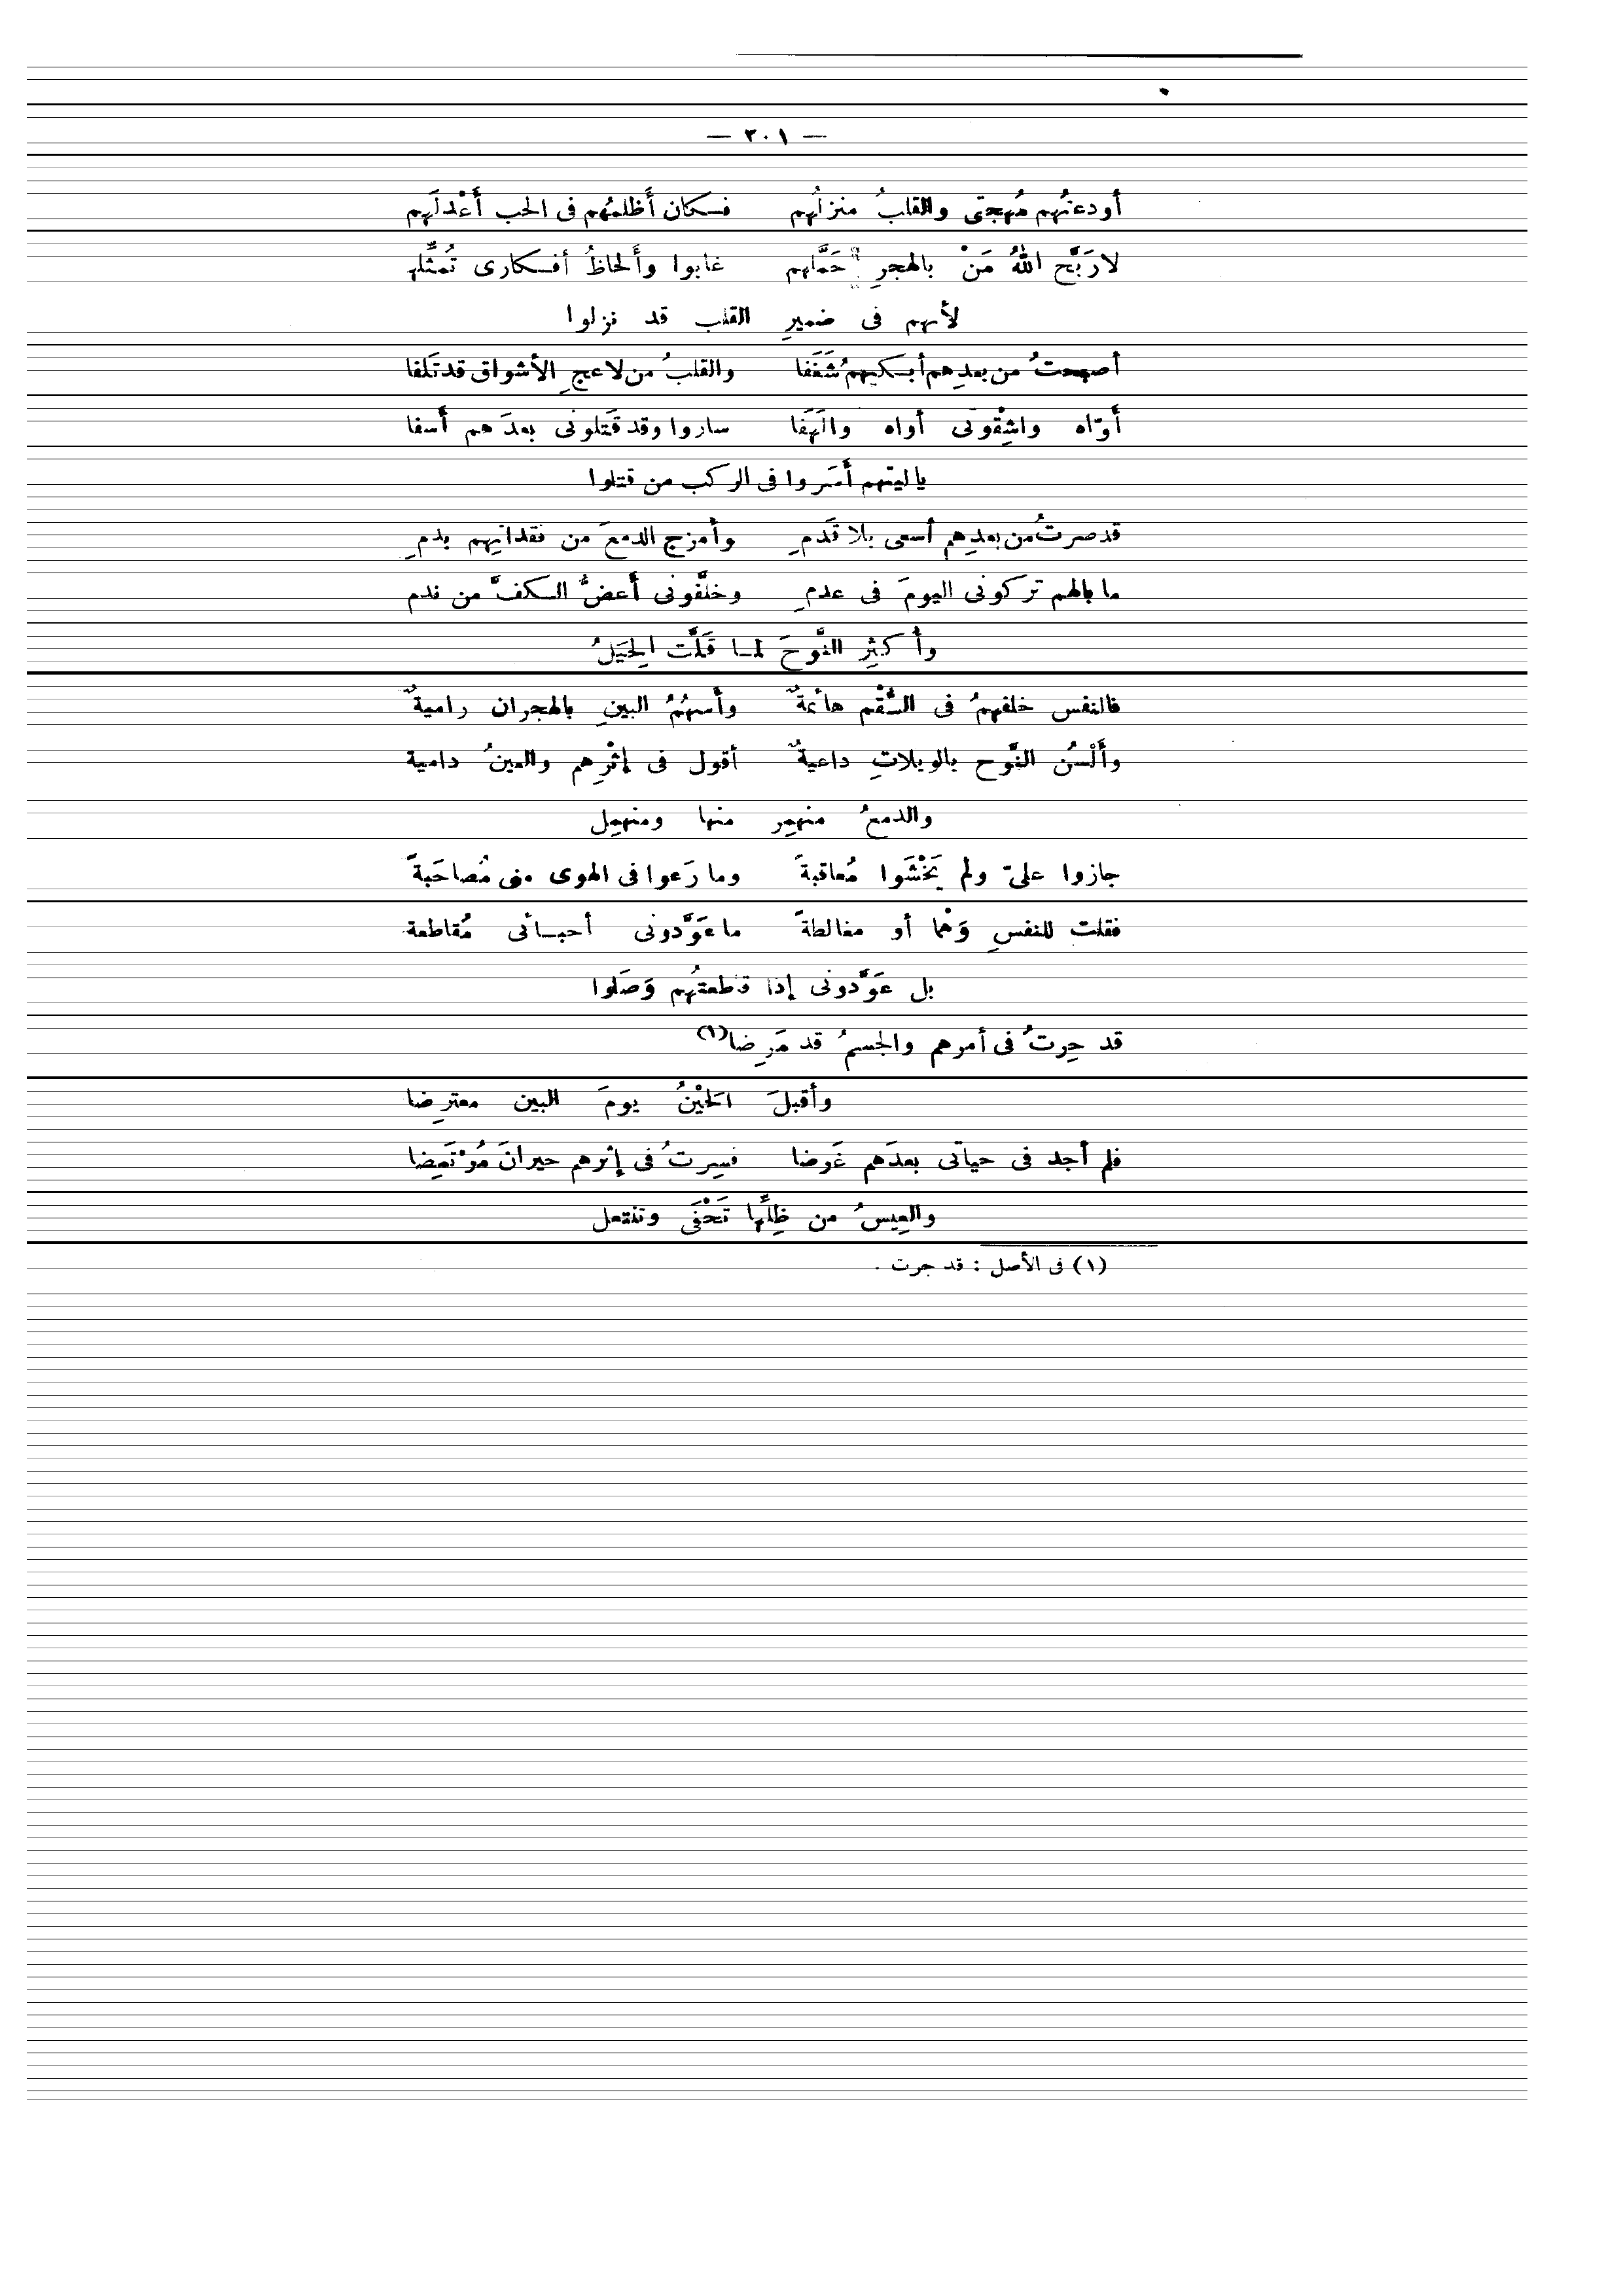 — ٢٠١ —
أودعتُهم مُهجتى والقلبُ منزلُهم فكان أَظلمُهم فى الحب أَعْدلَهم
لا رَبَّح اللهُ مَنْ بالهجرِ حَمَّلهم غابوا وأَلحاظُ أفكارى تُمثِّلهم
لأنهم فى ضميرِ القلب قد نزلوا
أصبحتُ من بعدِهم أبكيهمُ شَغَفا والقلبُ من لاعجِ الأشواق قد تَلفا
أَوّاه واشِقْوتى أواه والَهَفَا ساروا وقد قَتَلونى بعدَهم أَسفا
ياليتهم أَسَروا فى الركب من قتلوا
قد صرتُ من بعدِهم أسعى بلا قَدَمِ وأمزج الدمعَ من فقدانِهم بدمِ
ما بالهم تركونى اليومَ فى عدمِ وخلَّفونى أَعضُّ الكفَّ من ندم
وأُكثِر النَّوحَ لما قَلَّت الحِيَلُ
فالنفس خلفهمُ فى السُّقْم هائمةٌ وأَسهُمُ البينِ بالهجران راميةٌ
وأَلْسُن النَّوح بالويلاتِ داعيةٌ أقول فى إثْرِهم والعينُ دامية
والدمعُ منهمِر منها ومنهمِل
جازوا علىّ ولم يَخْشَوا مُعاقبةً وما رَعوا فى الهوى منى مُصاحَبةً
فقلت للنفسِ وَهْما أو مغالطةً ما عَوَّدونى أحبائى مُقاطعة
بل عَوَّدونى إذا قاطعتُهم وَصَلوا
قد حِرتُ فى أمرهم والجسمُ قد مَرِضا(١)
وأقبلَ الحَيْنُ يومَ البين معترِضا
فلم أجد فى حياتى بعدَهم غَرضا فسِرتُ فى إثرهم حيرانَ مُرْتَمِضا
والعِيسُ من ظِلِّها تَحْفَى وتنتعل
(١) فى الأصل : قد جرت .